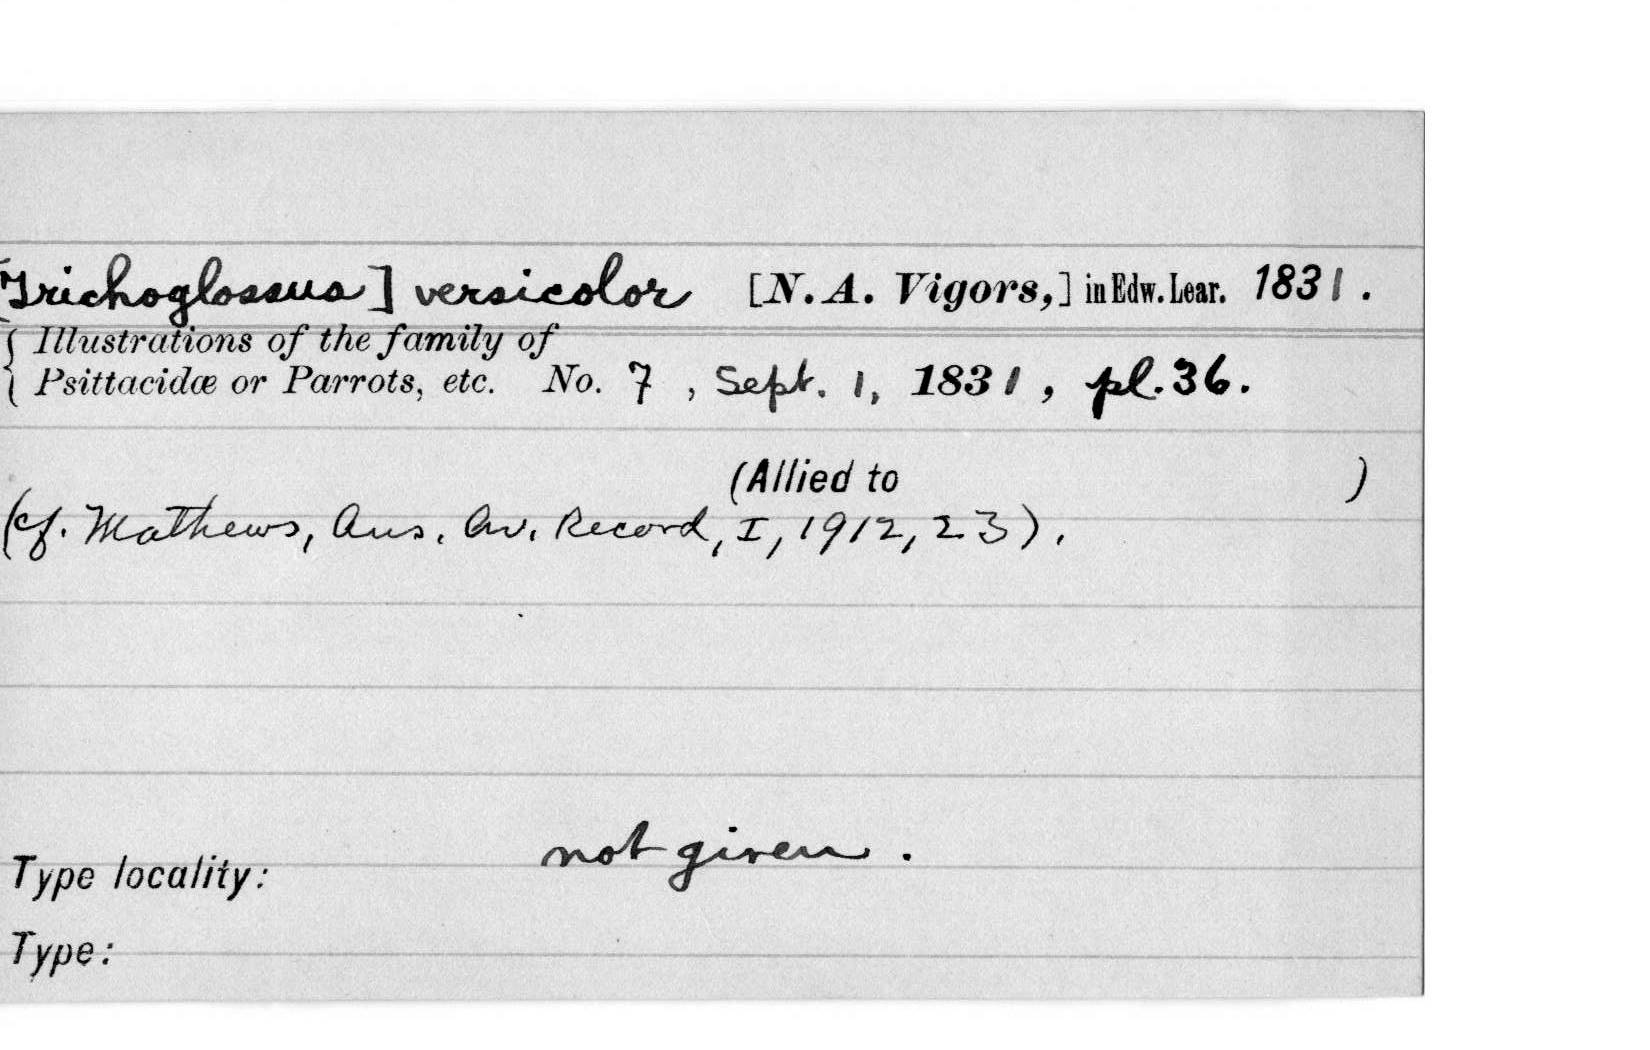 [Trichoglossus] versicolor [N. A. Vigors,] in Edw. Lear. 1831.
{ Illustrations of the family of
Psittacidæ or Parrots, etc. No. 7, Sept. 1, 1831, pl. 36.
(Allied to )
(cf. Mathews, Aus. Av. Record, I, 1912, 23).
not given.
Type locality:
Type: